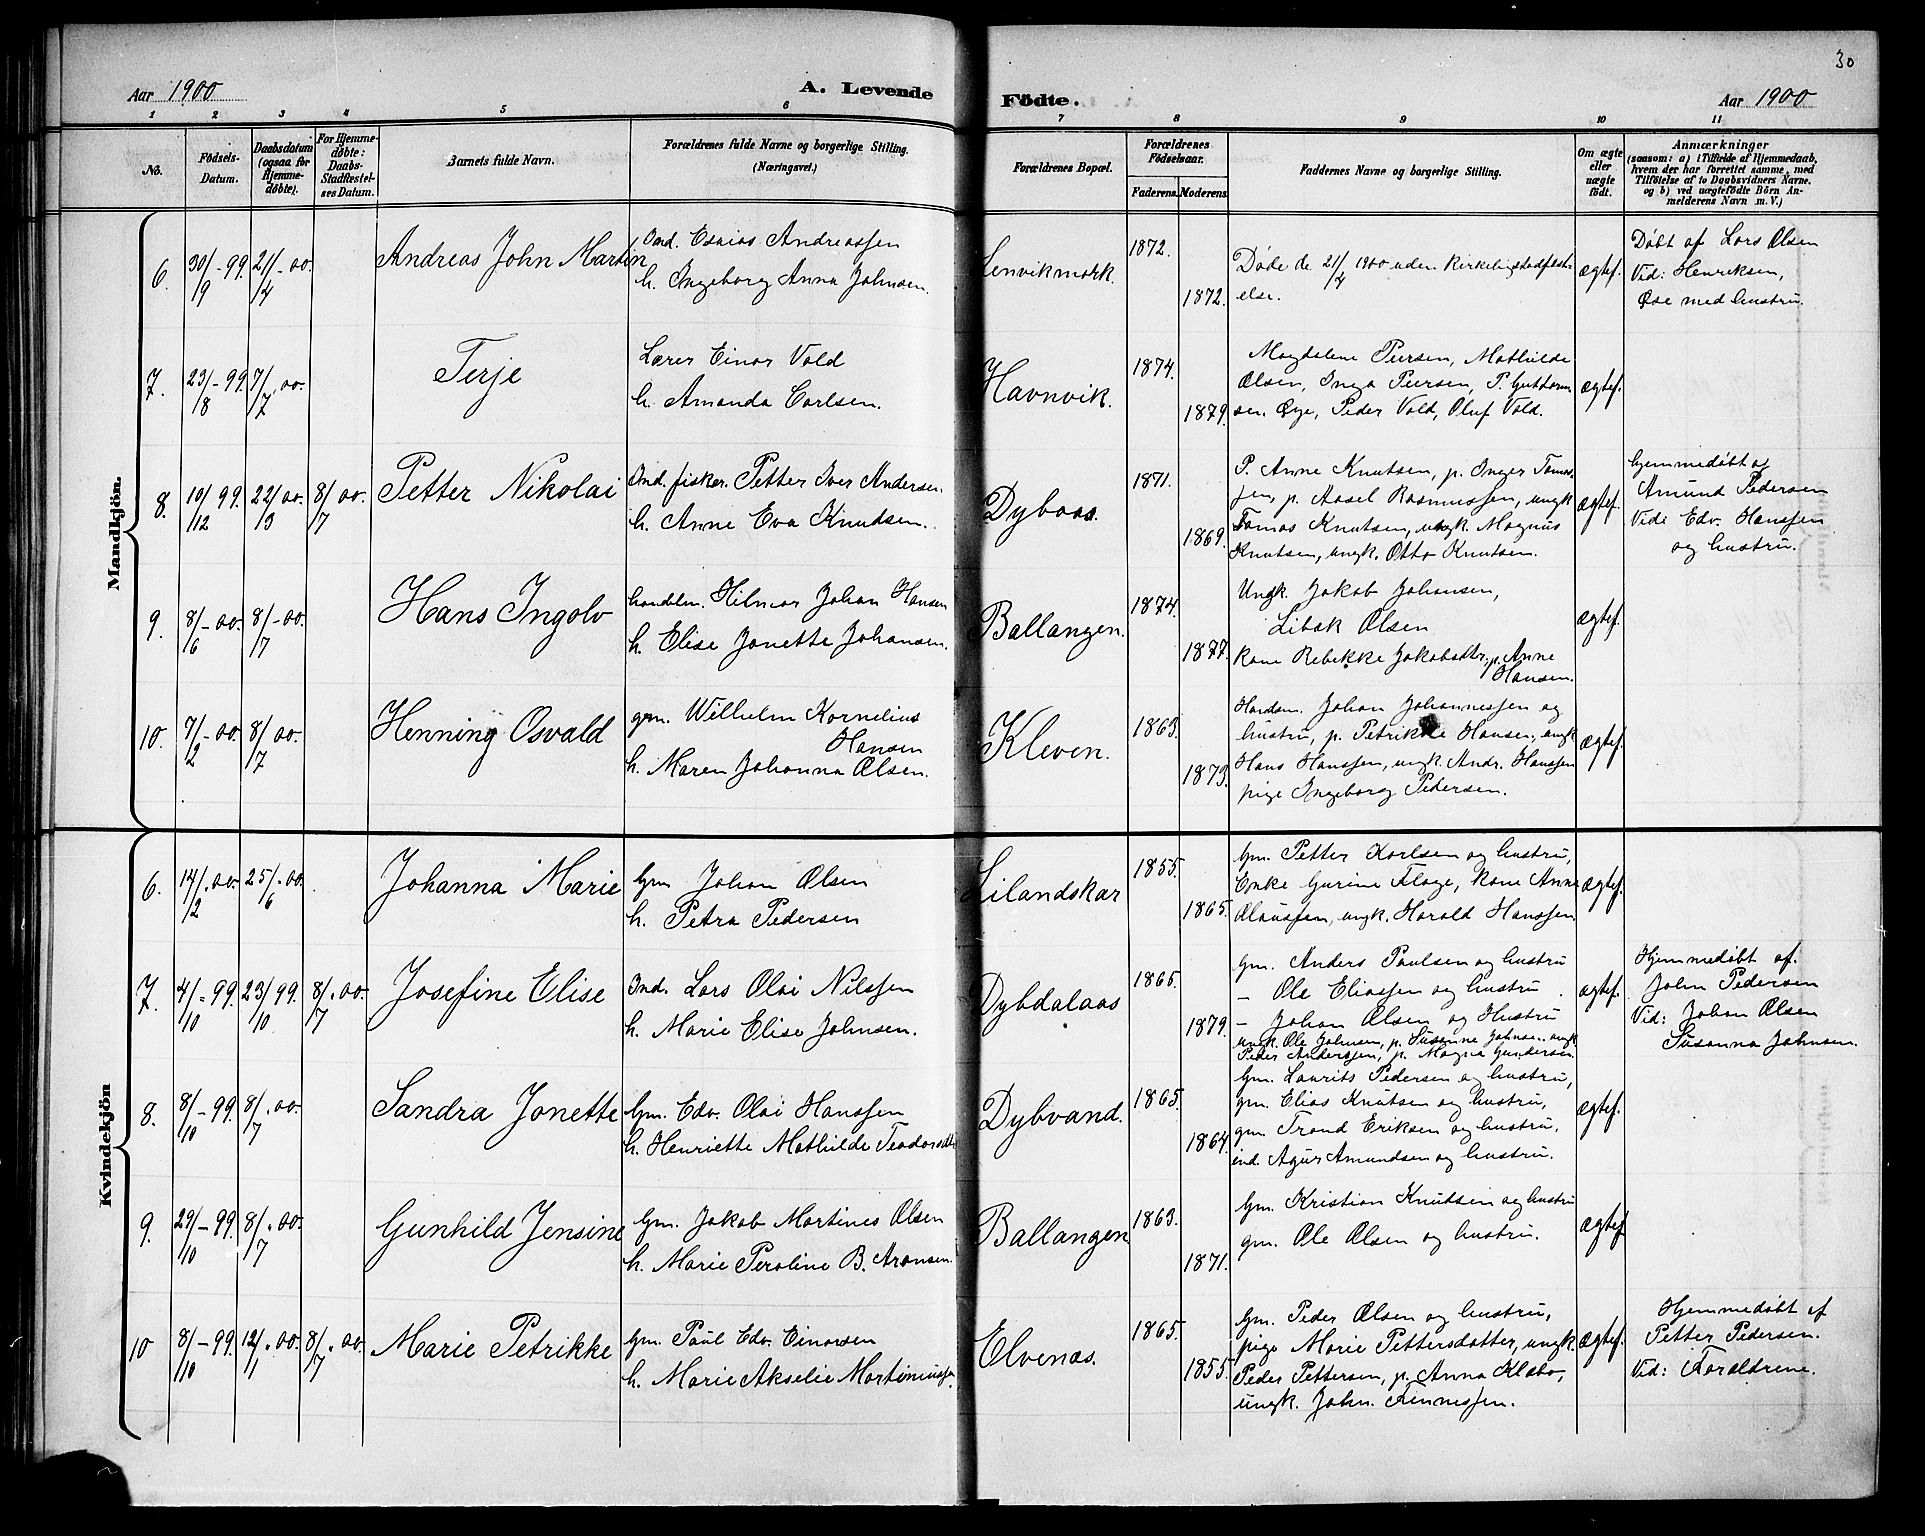 30
Aar 1900
A. Levende
Födte.
Aar 1900
1 2 3 4 5 6 7 8 9 10 11
No.
Födsels-
Datum.
Daabsdatum
(ogsaa for
Hjemme-
döbte).
For Hjemme-
döbte:
Daabs-
Stadfæstel-
ses Datum.
Barnets fulde Navn.
Forældrenes fulde Navne og borgerlige Stilling.
(Næringsvei.)
Forældrenes Bopæl.
Forældrenes
Födselsaar.
Faderens.
Moderens.
Faddernes Navne og borgerlige Stilling.
Om ægte
eller
uægte
födt.
Anmærkninger
(saasom: a) i Tilfælde af Hjemmedaab,
hvem der har forrettet samme, med
Tilföielse af to Daabsvidners Navne,
og b) ved uægtefödte Börn An-
melderens Navn m. V.)
Mandkjön.
6. 30/9 - 99. 21/4 - 00.
Andreas John Martin
Ind. Esaias Andreassen
h. Ingeborg Anna Johnsen.
Lenvikmark.
1872.
1872.
Døde d. 21/4 1900 uden kirkelig stadfæst-
else.
ægtef.
Døbt af Lars Olsen
Vid: Henriksen,
Øse med hustru.
7. 23/8 - 99. 7/7 00.
Terje
Lærer Einar Vold
h. Amanda Carlsen.
Havnvik.
1874.
1879.
Magdalene Pursen, Mathilde
Olsen, Inga Pursen, P. Guttorm-
sen Øye, Peder Vold, Oluf Vold.
ægtef.
8. 10/12 99. 22/3 00. 8/7 00.
Petter Nikolai
Ind. fisker. Petter Iver Andersen.
h. Anne Eva Knudsen.
Dybaas.
1871.
1869.
P. Anne Knutsen, p. Inger Tomas-
sen, p. Aasel Rasmussen, ungk
Tomas Knutsen, ungk. Magnus
Knutsen, ungk. Otto Knutsen.
ægtef.
hjemmedøbt af
Amund Pedersen
Vidi Edv. Hanssen
og hustru.
9. 8/6 - 00. 8/7 - 00.
Hans Ingolv
handelm. Hilmar Johan Hansen
h. Elise Jonette Johansen.
Ballangen.
1874.
1877.
Ungk. Jakob Johansen,
Libæk Olsen
kone Rebekke Jakobsdtr, p. Anne
Hansen.
ægtef.
10. 7/2 - 00. 8/7 00.
Henning Osvald
grm. Wilhelm Kornelius
Hansen
h. Maren Johanna Olsen.
Kleven.
1863.
1873.
Handsm. Johan Johannessen og
hustru, p. Petrikke Hansen, ungk
Hans Hanssen, ungk. Andr. Hanssen
pige Ingeborg Pedersen.
ægtef.
Kvindekjön
6. 14/2 . 00. 25/6 . 00.
Johanna Marie
Gm Johan Olsen
h. Petra Pedersen
Lilandskar
1855.
1865.
Gm. Petter Karlsen og hustru,
Enke Gurine Floge, kone Anne
Olaussen, ungk. Harald Hanssen
ægtef.
7. 4/10 - 99. 23/10 99. 8/7 . 00.
Josefine Elise
Ind. Lars Olai Nilssen
h. Marie Elise Johnsen.
Dybdalaas
1865.
1879.
gm. Anders Paulsen og hustru
- Ole Eliassen og hustru.
- Johan Olsen og Hustru
ungk. Ole Johnsen, p. Susanne Johnsen, ungk
Peder Anderssen, p. Magna Gundersen
ægtef.
Hjemmedøbt af.
John Pedersen
Vid: Johan Olsen
Susanna Johnsen.
8. 8/10 - 99. 8/7 . 00.
Sandra Jonette
Gm. Edv. Olai Hanssen
h. Henriette Mathilde Teodorsdtr
Dybvand.
1865.
1864.
Gm. Laurits Pedersen og hustru,
gm. Elias Knutsen og hustru,
gm Trond Eriksen og hustru.
ind. Agur Amundsen og hustru.
ægtef.
9. 29/10 - 99. 8/7 . 00.
Gunhild Jensine
Gm. Jakob Martines Olsen
h. Marie Peroline B. Aronsen.
Ballangen
1863.
1871.
Gm. Kristian Knudsen og hustru
gm. Ole Olsen og hustru.
ægtef
10 8/10 - 99. 12/1 . 00. 8/7 . 00.
Marie Petrikke
Gm. Paul Edv. Einarsen
h. Marie Akselie Martinussen.
Elvenas.
1865.
1855.
Gm. Peder Olsen og hustru,
pige Marie Pettersdatter, ungk.
Peder Pettersen, p. Anna Klæbo,
ungk. John. Finnessen.
ægtef.
Hjemmedøbt af
Petter Pedersen.
Vid: Forældrene.